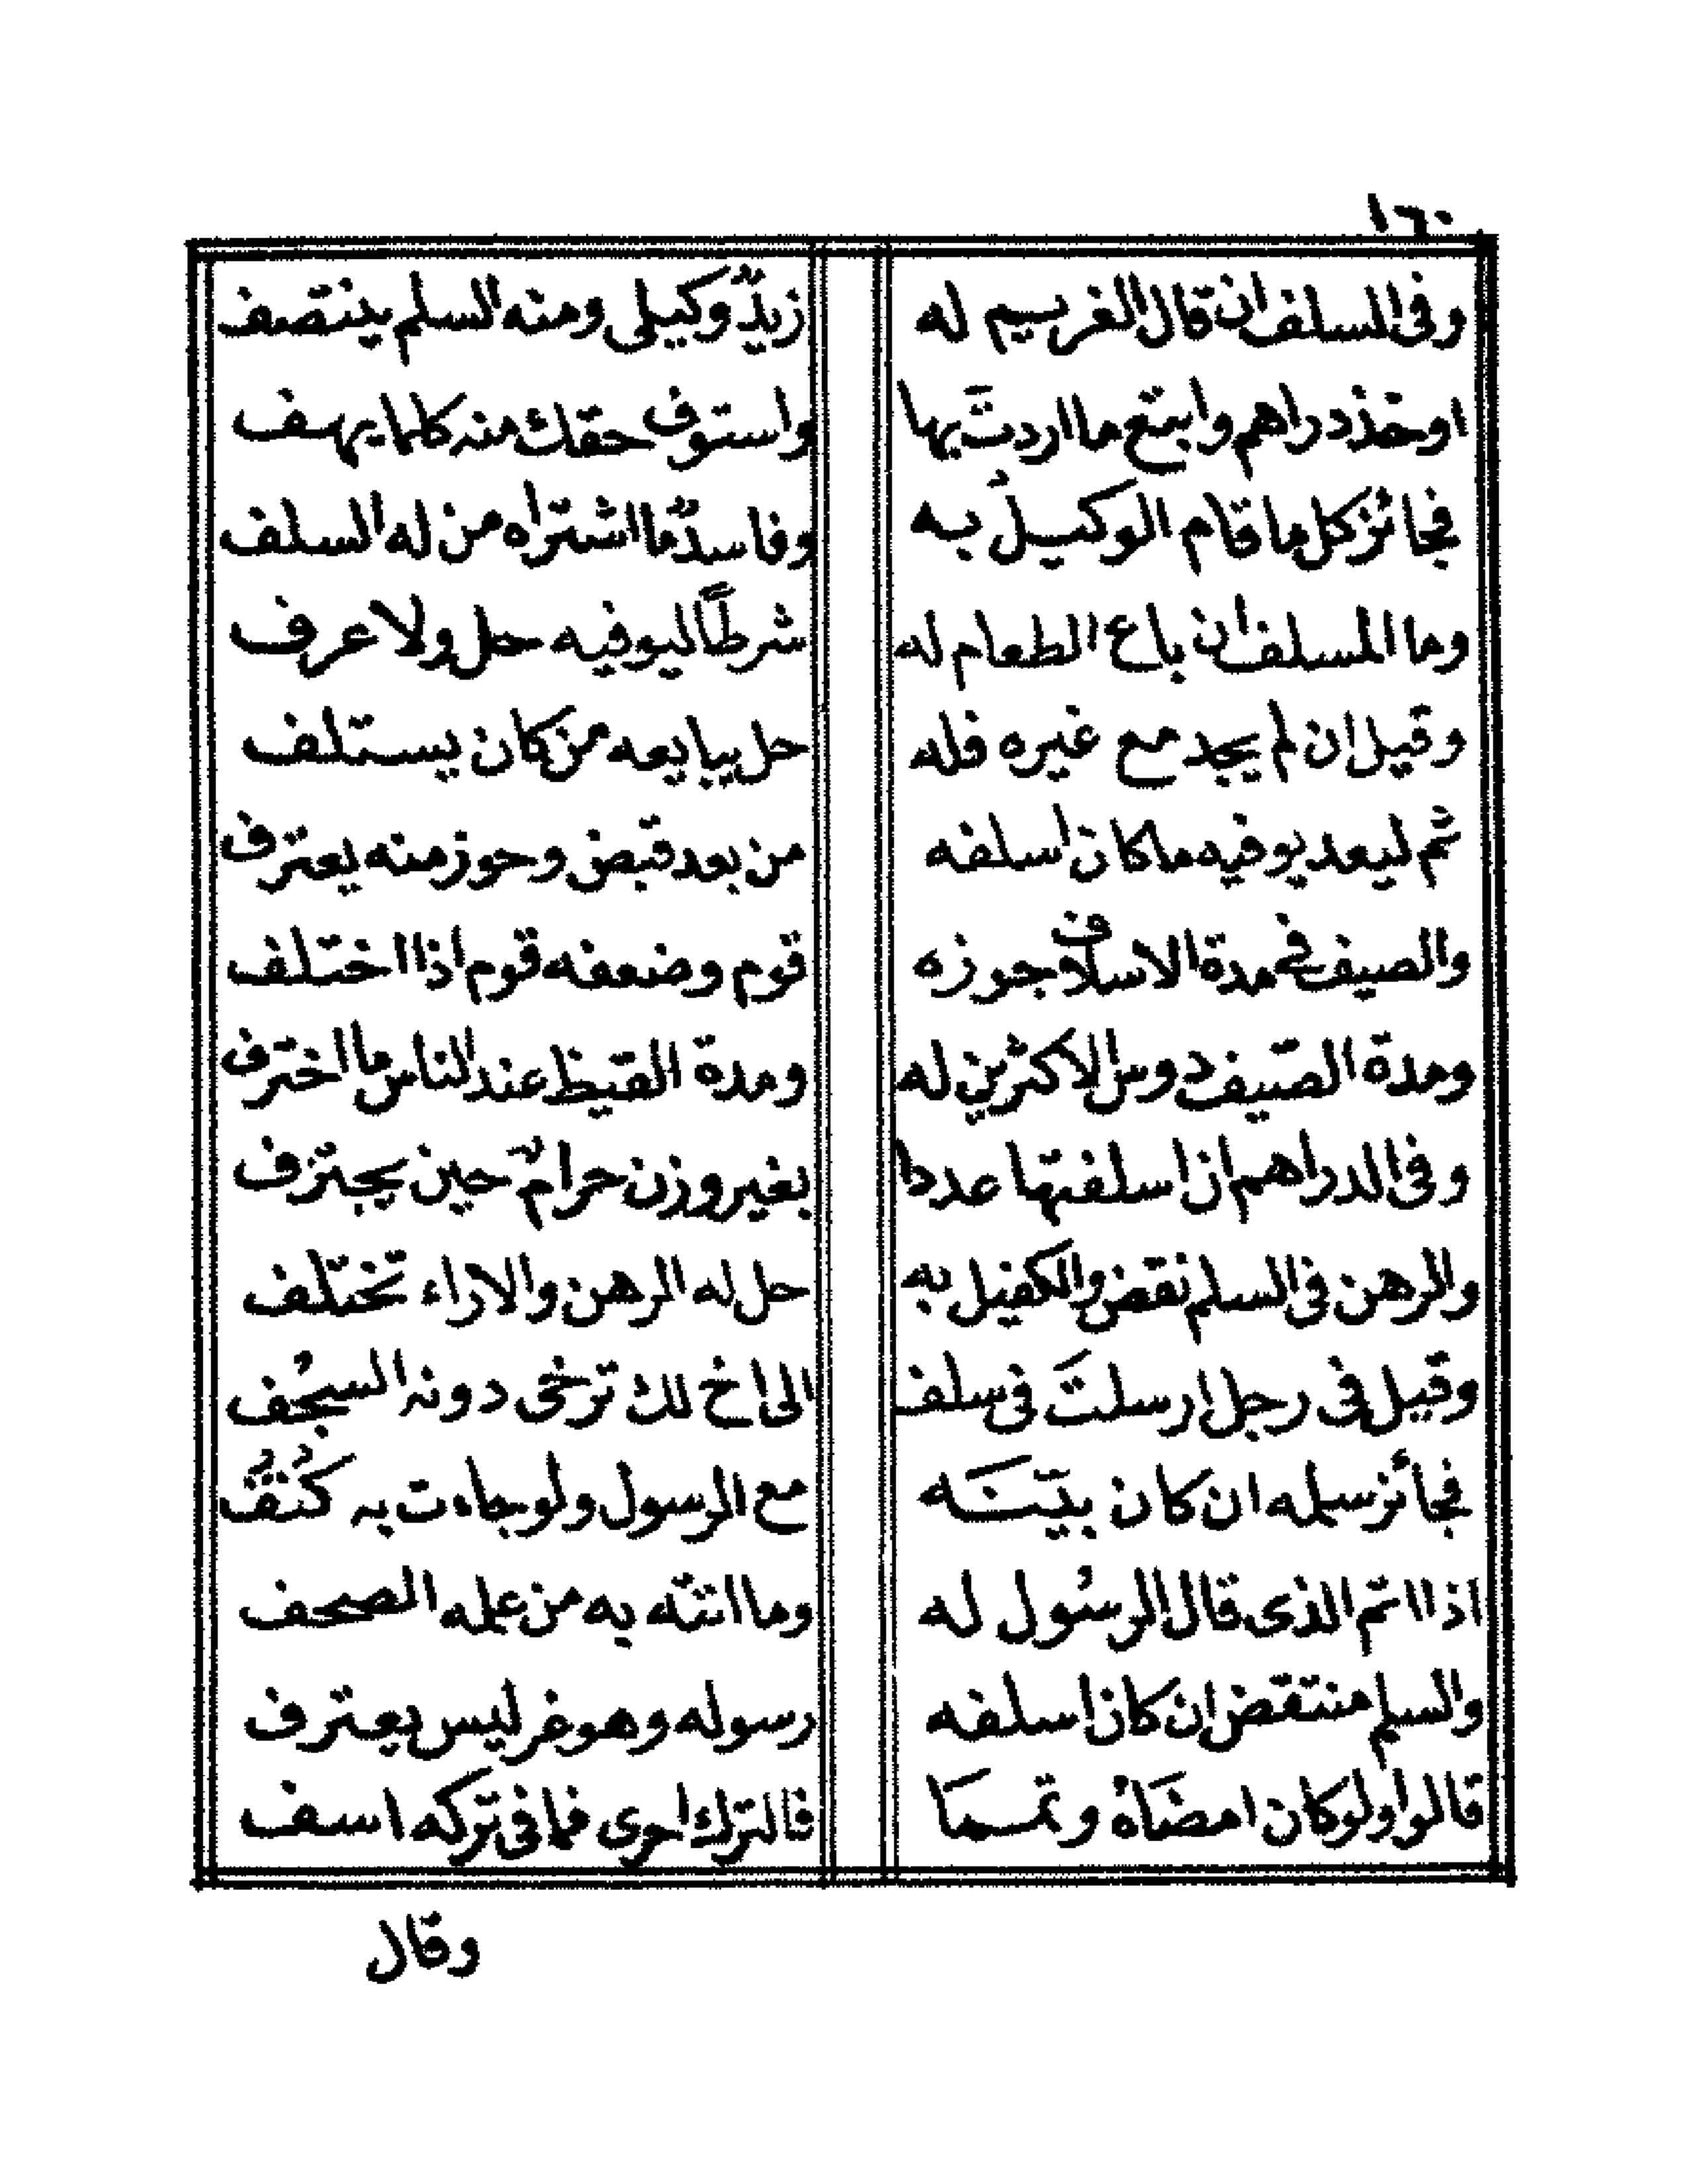 ١٦٠
وفى المسلف ان قال الغريم له زيدٌ وكيلى ومنه السلم ينتصف
اوخذ دراهم وابتع ما اردتَ بها واستوف حقك منه كلما يهف
فجائز كل ما قام الوكيلُ به وفاسدٌ ما اشتراه من له السلف
وما المسلف ان باع الطعام له شرطاً ليوفيه حل ولا عرف
وقيل ان لم يجد مع غيره فله حل يبايعه من كان يستلف
ثم ليعد يوفيه ما كان اسلفه من بعد قبض وحوز منه يعترف
والصيف فى مدة الاسلاف جوزه قوم وضعفه قوم اذا اختلف
ومدة الصّيف دوس الاكثرين له ومدة القيظ عند الناس ما اخترف
وفى الدراهم ان اسلفتها عددا بغير وزن حرامٌ حين يجتزف
والرهن فى السلم نقض والكفيل به حل له الرهن والاراء تختلف
وقيل فى رجل ارسلتَ فى سلف الى اخ لك ترخى دونه السجُف
فجائز سلمه ان كان بيّنَه مع الرسول ولو جاءت به كُتُفُ
اذا اتم الذى قال الرسُول له وما اتته به من علمه الصحف
والسلم منتقض ان كان اسلفه رسوله وهو غر ليس يعترف
قالوا ولو كان امضَاهُ وتممَا فالترك احرى فما فى تركه اسف
وقال